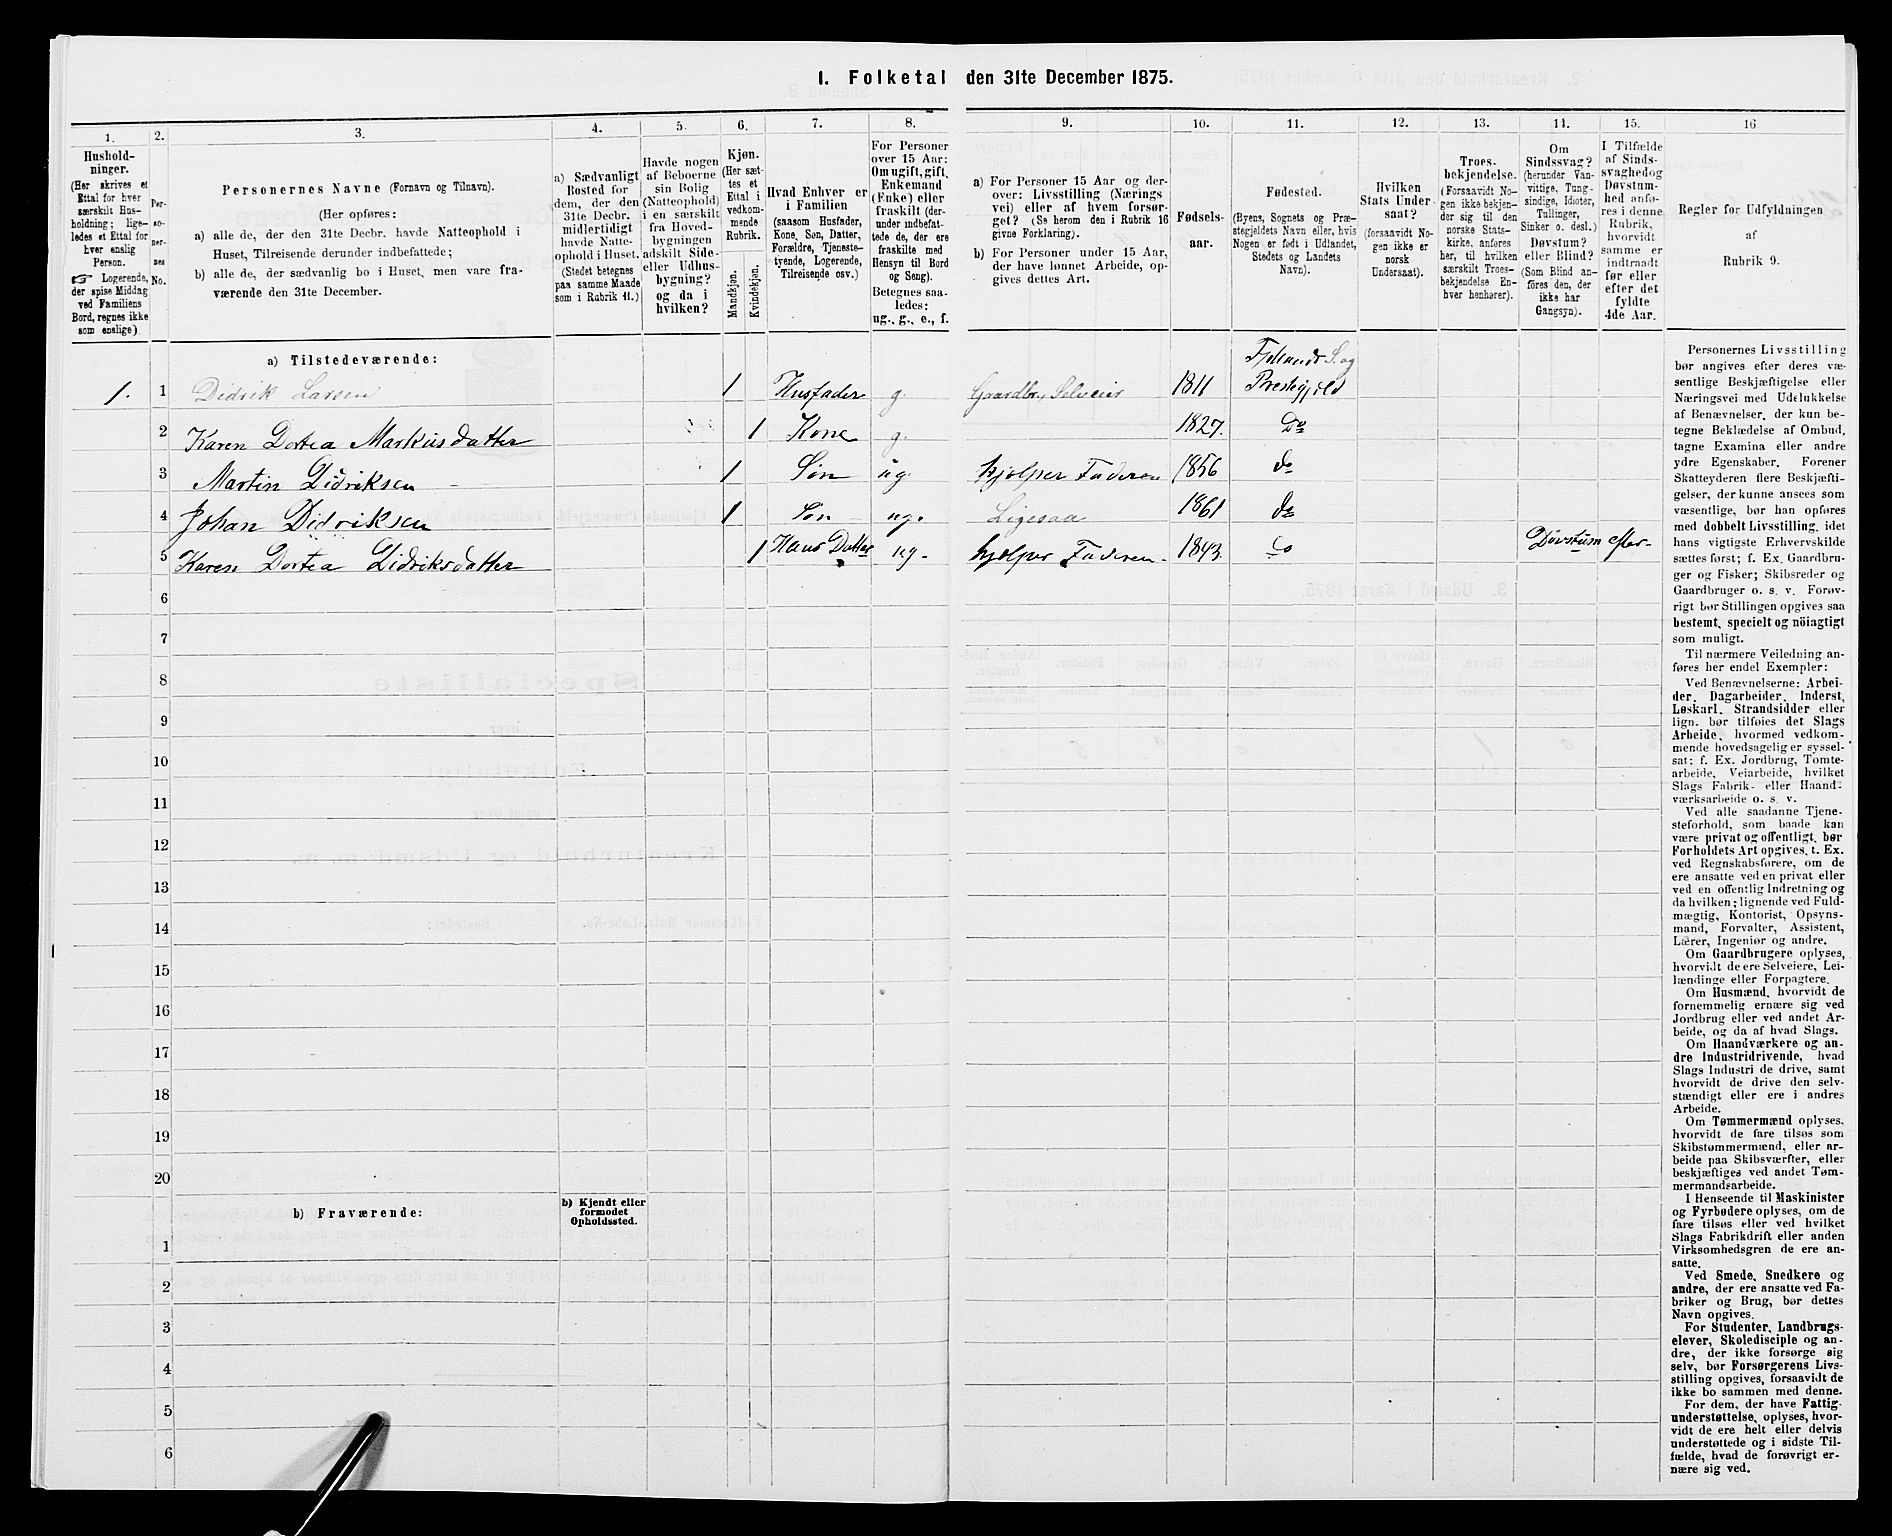 1. Folketal den 31te December 1875.
1. 2. 3. 4. 5. 6. 7. 8. 9. 10. 11. 12. 13. 14. 15. 16
Hushold-
ninger.
(Her skrives et
Ettal for hver
særskilt Hus-
holdning; lige-
ledes et Ettal for
hver enslig
Person.
☞ Logerende,
der spise Middag
ved Familiens
Bord, regnes ikke
som enslige)
Per-
so-
ner-
nes
No.
Personernes Navne (Fornavn og Tilnavn).
(Her opføres:
a) alle de, der den 31te Decbr. havde Natteophold i
Huset, Tilreisende derunder indbefattede;
b) alle de, der sædvanlig bo i Huset, men vare fra-
værende den 31te December.
a) Sædvanligt
Bosted for
dem, der den
31te Decbr.
midlertidigt
havde Natte-
ophold i Huset.
(Stedet betegnes
paa samme Maade
som i Rubrik 11.)
Havde nogen
af Beboerne
sin Bolig
(Natteophold)
i en særskilt
fra Hoved-
bygningen
adskilt Side-
eller Udhus-
bygning?
og da i
hvilken?
Kjøn.
(Her sæt-
tes et
Ettal i
vedkom-
mende
Rubrik.
Mandkjøn.
Kvindekjøn.
Hvad Enhver er
i Familien
(saasom Husfader,
Kone, Søn, Datter,
Forældre, Tjeneste-
tyende, Logerende,
Tilreisende osv.)
For Personer
over 15 Aar:
Om ugift, gift,
Enkemand
(Enke) eller
fraskilt (der-
under indbefat-
tede de, der ere
fraskilte med
Hensyn til Bord
og Seng).
Betegnes saa-
ledes:
ug., g., e., f.
a) For Personer 15 Aar og der-
over: Livsstilling (Nærings
vei) eller af hvem forsør-
get? (Se herom den i Rubrik 16
givne Forklaring).
b) For Personer under 15 Aar,
der have lønnet Arbeide, op-
gives dettes Art.
Fødsels-
aar.
Fødested.
(Byens, Sognets og Præ-
stegjeldets Navn eller, hvis
Nogen er født i Udlandet,
Stedets og Landets
Navn).
Hvilken
Stats Under-
saat?
(forsaavidt No-
gen ikke er
norsk
Undersaat).
Troes-
bekjendelse.
(Forsaavidt No-
gen ikke bekjen-
der sig til den
norske Stats-
kirke, anføres
her, til hvilken
særskilt Troes-
bekjendelse En-
hver henhører).
Om
Sindssvag?
(herunder Van-
vittige, Tung-
sindige, Idioter,
Tullinger,
Sinker o. desl.)
Døvstum?
eller Blind?
(Som Blind an-
føres den, der
ikke har
Gangsyn).
I Tilfælde
af Sinds-
svaghed og
Døvstum-
hed anfø-
res i denne
Rubrik,
hvorvidt
samme er
indtraadt
før eller
efter det
fyldte
4de Aar.
Regler for Udfyldningen
af
Rubrik 9.
a) Tilstedeværende:
1. 1 Didrik Larsen 1 Husfader g. Gaardbr. Selveier 1811 Fjellands S. og
Prestegjeld
2 Karen Dortea Markusdatter 1 Kone g. 1827. Do
3 Martin Didriksen 1 Søn ug hjelper Faderen 1856 do
4 Johan Didriksen 1 Søn ug. Ligesaa 1861 do
5 Karen Dortea Didriksdatter 1 Hans Datter ug. hjelper Faderen 1843. Do Døvstum efter
6
7
8
9
10
11
12
13
14
15
16
17
18
19
20
b) Fraværende:
b) Kjendt eller
formodet
Opholdssted.
1
2
3
4
5
6
Personernes Livsstilling
bør angives efter deres væ-
sentlige Beskjæftigelse eller
Næringsvei med Udelukkelse
af Benævnelser, der kun be-
tegne Beklædelse af Ombud,
tagne Examina eller andre
ydre Egenskaber. Forener
Skatteyderen flere Beskjæfti-
gelser, der kunne ansees som
væsentlige, bør han opføres
med dobbelt Livsstilling, idet
hans vigtigste Erhvervskilde
sættes først; f. Ex. Gaardbru-
ger og Fisker; Skibsreder og
Gaardbruger o. s. v. Forøv-
rigt bør Stillingen opgives saa
bestemt, specielt og nöiagtigt
som muligt.
Til nærmere Veiledning an-
føres her endel Exempler:
Ved Benævnelserne: Arbei-
der, Dagarbeider, Inderst,
Løskarl, Strandsidder eller
lign. bør tilføies det Slags
Arbeide, hvormed vedkom-
mende hovedsagelig er syssel-
sat; f. Ex. Jordbrug, Tomte-
arbeide, Veiarbeide, hvilket
Slags Fabrik- eller Haand-
værksarbeide o. s. v.
Ved alle saadanne Tjene-
steforhold, som baade kan
være privat og offentligt, bør
Forholdets Art opgives, t. Ex.
ved Regnskabsførere, om de
ere ansatte ved en privat eller
ved en offentlig Indretning og
da hvilken; lignende ved Fuld-
mægtig, Kontorist, Opsyns-
mand, Forvalter, Assistent,
Lærer, Ingeniør og andre.
Om Gaardbrugere oplyses,
hvorvidt de ere Selveiere, Lei-
lændinge eller Forpagtere.
Om Husmænd, hvorvidt de
fornemmelig ernære sig ved
Jordbrug eller ved andet Ar-
beide, og da af hvad Slags.
Om Haandværkere og an-
dre Industridrivende, hvad
Slags Industri de drive, samt
hvorvidt de drive den selv-
stændigt eller ere i andres
Arbeide.
Om Tømmermænd oplyses,
hvorvidt de fare tilsøs som
Skibstømmermænd, eller ar-
beide paa Skibsværfter, eller
beskjæftiges ved andet Tøm-
mermandsarbeide.
I Henseende til Maskinister
og Fyrbødere oplyses, om de
fare tilsøs eller ved hvilket
Slags Fabrikdrift eller anden
Virksomhedsgren de ere an-
satte.
Ved Smede, Snedkere og
andre, der ere ansatte ved Fa-
briker og Brug, bør dettes
Navn opgives.
For Studenter, Landbrugs-
elever, Skoledisciple og an-
dre, der ikke forsørge sig
selv, bør Forsørgerens Livs-
stilling opgives, forsaavidt de
ikke bo sammen med denne.
For dem, der have Fattig-
understøttelse, oplyses, hvor-
vidt de ere helt eller delvis
understøttede og i sidste Til-
fælde, hvad de forøvrigt er-
nære sig ved.